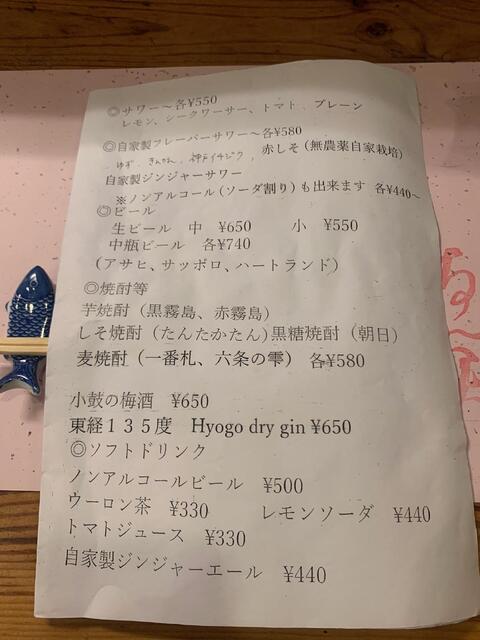 ◎サワー～各¥550
レモン、シークワーサー、トマト、プレーン
◎自家製フレーバーサワー～各¥580
ゆず、きんかん、神戸イチジク、赤しそ(無農薬自家栽培)
自家製ジンジャーサワー
※ノンアルコール(ソーダ割り)も出来ます 各¥440～
◎ビール
生ビール 中 ¥650 小 ¥550
中瓶ビール 各¥740
(アサヒ、サッポロ、ハートランド)
◎焼酎等
芋焼酎(黒霧島、赤霧島)
しそ焼酎(たんたかたん)黒糖焼酎(朝日)
麦焼酎(一番札、六条の雫) 各¥580
小鼓の梅酒 ¥650
東経135度 Hyogo dry gin ¥650
◎ソフトドリンク
ノンアルコールビール ¥500
ウーロン茶 ¥330 レモンソーダ ¥440
トマトジュース ¥330
自家製ジンジャーエール ¥440